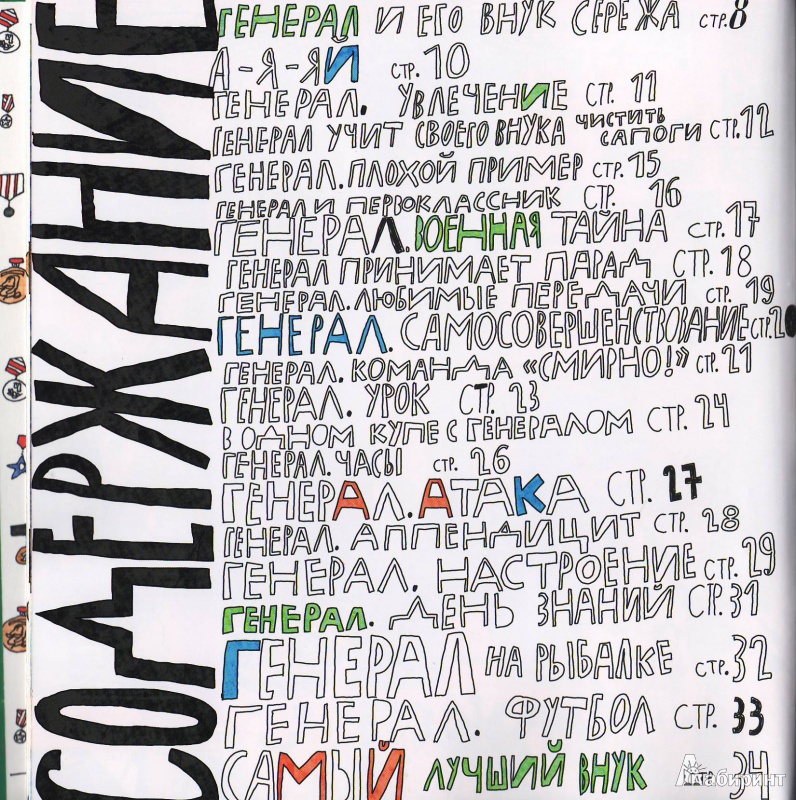 СОДЕРЖАНИЕ
ГЕНЕРАЛ И ЕГО ВНУК СЕРЕЖА СТР.8
А-Я-ЯЙ СТР. 10
ГЕНЕРАЛ. УВЛЕЧЕНИЕ СТР. 11
ГЕНЕРАЛ УЧИТ СВОЕГО ВНУКА ЧИСТИТЬ САПОГИ СТР.12
ГЕНЕРАЛ.ПЛОХОЙ ПРИМЕР СТР.15
ГЕНЕРАЛ И ПЕРВОКЛАССНИК СТР. 16
ГЕНЕРАЛ.ВОЕННАЯ ТАЙНА СТР.17
ГЕНЕРАЛ ПРИНИМАЕТ ПАРАД СТР.18
ГЕНЕРАЛ.ЛЮБИМЫЕ ПЕРЕДАЧИ СТР.19
ГЕНЕРАЛ. САМОСОВЕРШЕНСТВОВАНИЕ СТР.20
ГЕНЕРАЛ.КОМАНДА «СМИРНО!» СТР.21
ГЕНЕРАЛ. УРОК СТР. 23
В ОДНОМ КУПЕ С ГЕНЕРАЛОМ СТР. 24
ГЕНЕРАЛ.ЧАСЫ СТР. 26
ГЕНЕРАЛ. АТАКА СТР. 27
ГЕНЕРАЛ. АППЕНДИЦИТ СТР. 28
ГЕНЕРАЛ. НАСТРОЕНИЕ СТР.29
ГЕНЕРАЛ. ДЕНЬ ЗНАНИЙ СТР.31
ГЕНЕРАЛ НА РЫБАЛКЕ СТР.32
ГЕНЕРАЛ. ФУТБОЛ СТР. 33
САМЫЙ ЛУЧШИЙ ВНУК СТР. 34
Лабиринт